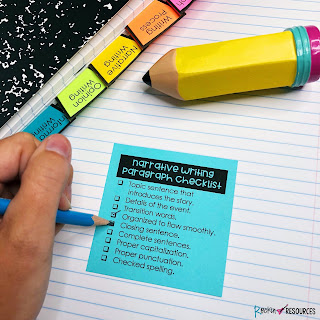 Writing
Process
Narrative
Writing
Opinion
Writing
Informa
Writing
Narrative Writing
Paragraph Checklist
Topic sentence that
introduces the story.
Details of the event.
Transition words.
Organized to flow smoothly.
Closing sentence.
Complete sentences.
Proper capitalization.
Proper punctuation.
Checked spelling.
RESOURCES